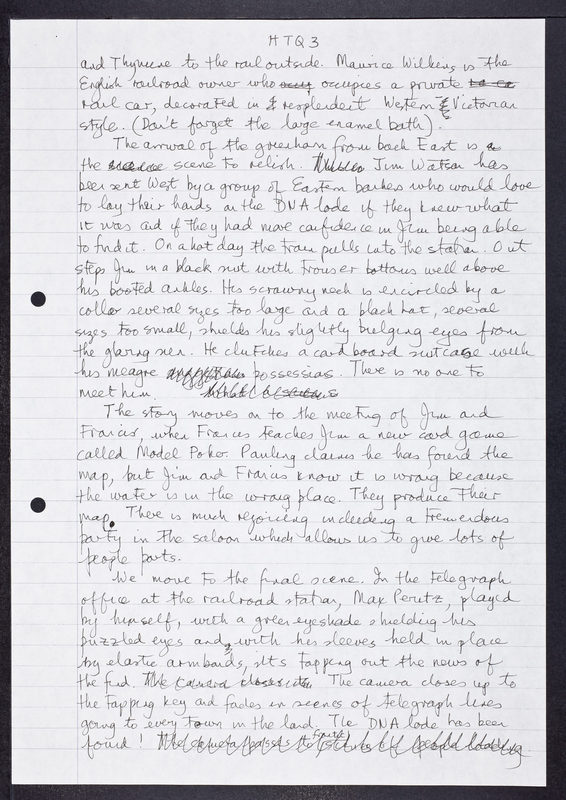 HTQ3
and Thymine to the rail outside. Maurice Wilkins is the
English railroad owner who occupies a private
rail car, decorated in resplendent Western & Victorian
style. (Don't forget the large enamel bath).
The arrival of the greenhorn from back East is a
the scene to relish. Jim Watson has
been sent West by a group of Eastern bankers who would love
to lay their hands on the DNA lode if they knew what
it was and if they had more confidence in Jim being able
to find it. On a hot day the train pulls into the station. Out
steps Jim in a black suit with trouser bottoms well above
his booted ankles. His scrawny neck is encircled by a
collar several sizes too large and a black hat, several
sizes too small, shields his slightly bulging eyes from
the glaring sun. He clutches a cardboard suitcase with
his meagre possessions. There is no one to
meet him.
The story moves on to the meeting of Jim and
Francis, when Francis teaches Jim a new card game
called Model Poker. Pauling claims he has found the
map, but Jim and Francis know it is wrong because
the water is in the wrong place. They produce their
map. There is much rejoicing including a tremendous
party in the saloon which allows us to give lots of
people parts.
We move to the final scene. In the telegraph
office at the railroad station, Max Perutz, played
by himself, with a green eyeshade shielding his
puzzled eyes and with his sleeves held in place
by elastic armbands, sits tapping out the news of
the find. The camera closes up to
the tapping key and fades in scenes of telegraph lines
going to every town in the land. The DNA lode has been
found!